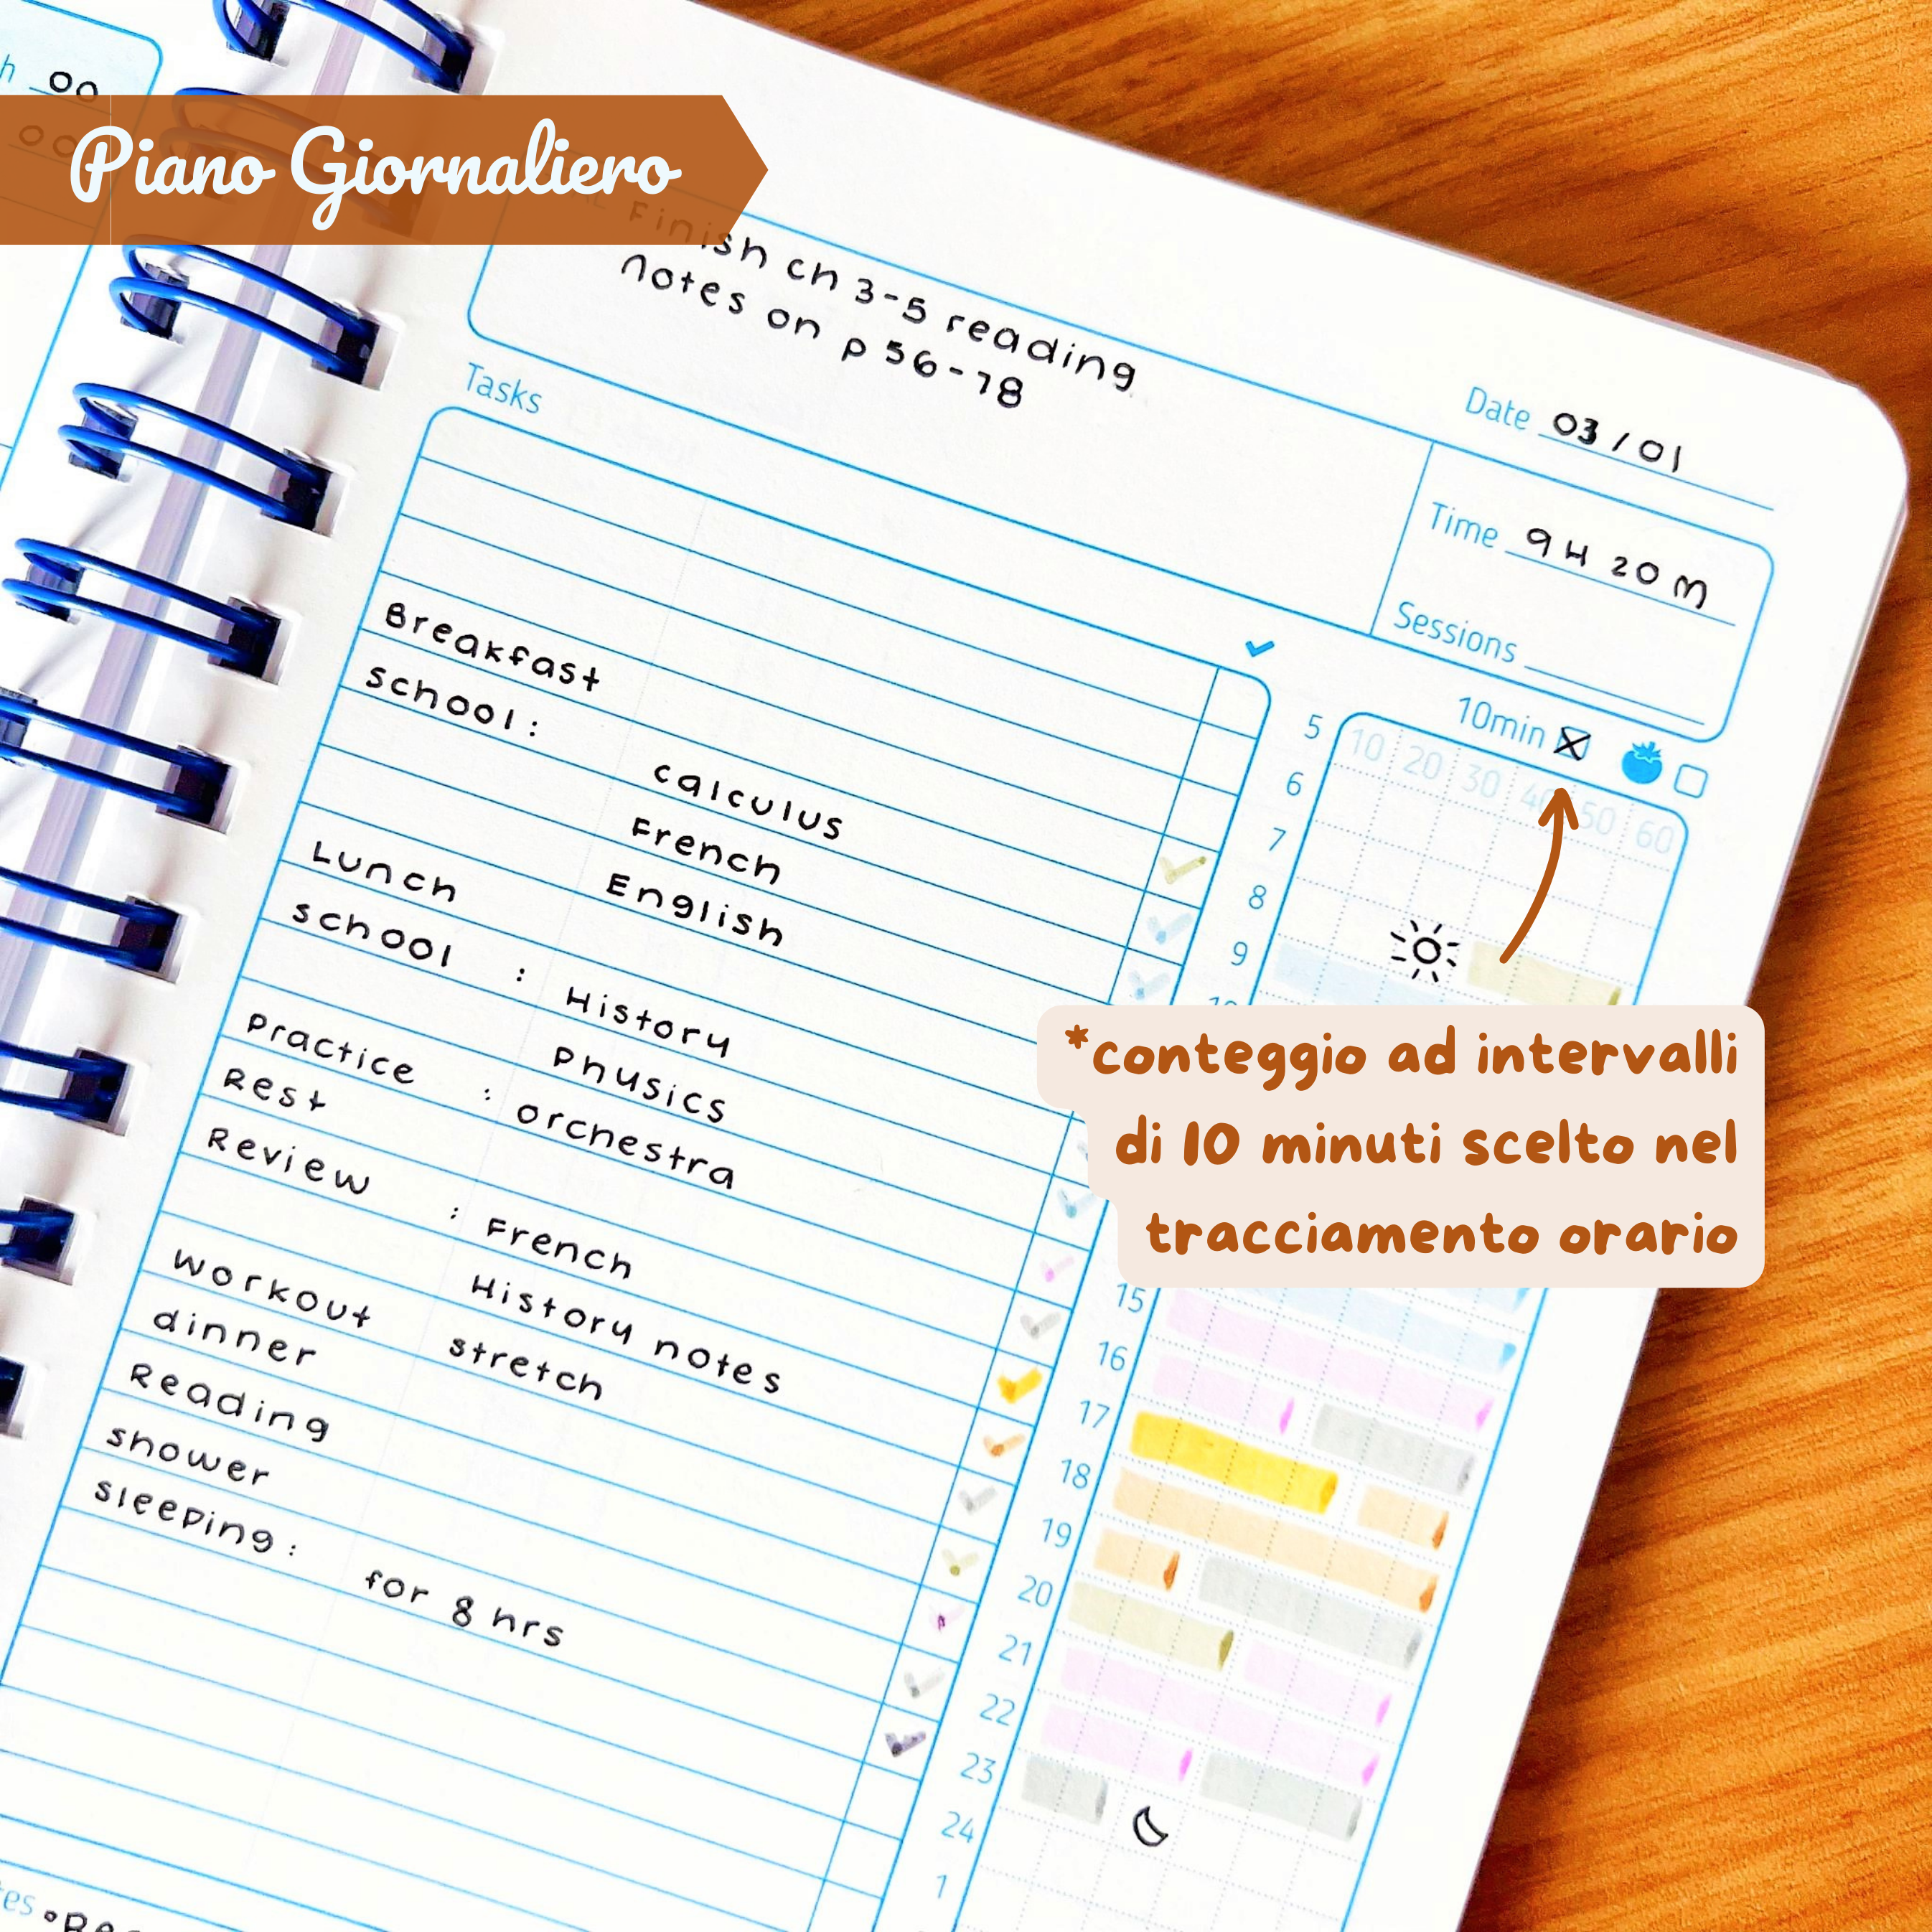 h 00
Piano Giornaliero
Finish ch 3-5 reading
notes on p 56-78
Date 03/01
Time 9H 20M
Sessions
Tasks
10min
5
10 20 30 40 50 60
6
7
8
9
Breakfast
school: calculus
French
English
Lunch
school : History
Phusics
Practice : orchestra
Rest
Review : French
History notes
workout stretch
dinner
Reading
shower
sleeping: for 8 hrs
*conteggio ad intervalli
di 10 minuti scelto nel
tracciamento orario
15
16
17
18
19
20
21
22
23
24
1